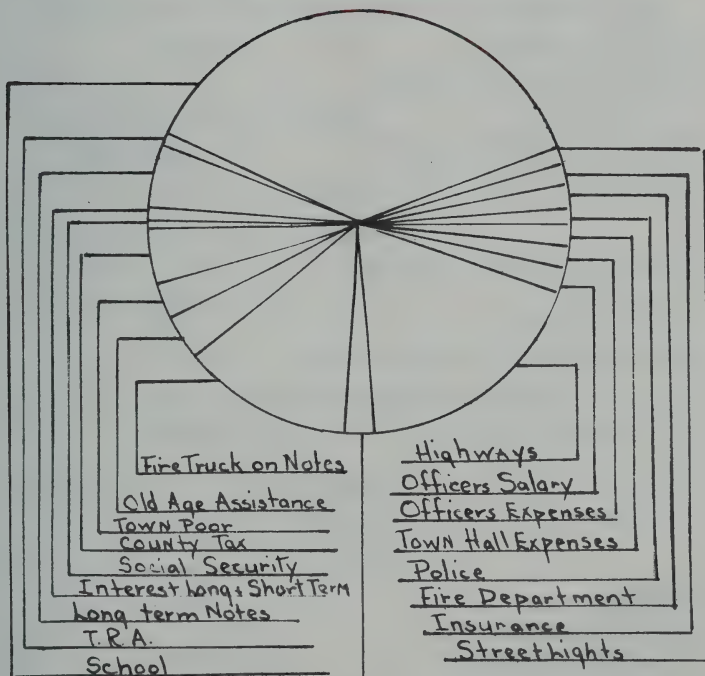 Fire Truck on Notes
Old Age Assistance
Town Poor
County Tax
Social Security
Interest Long & Short Term
Long term Notes
T.R.A.
School
Highways
Officers Salary
Officers Expenses
Town Hall Expenses
Police
Fire Department
Insurance
Street Lights